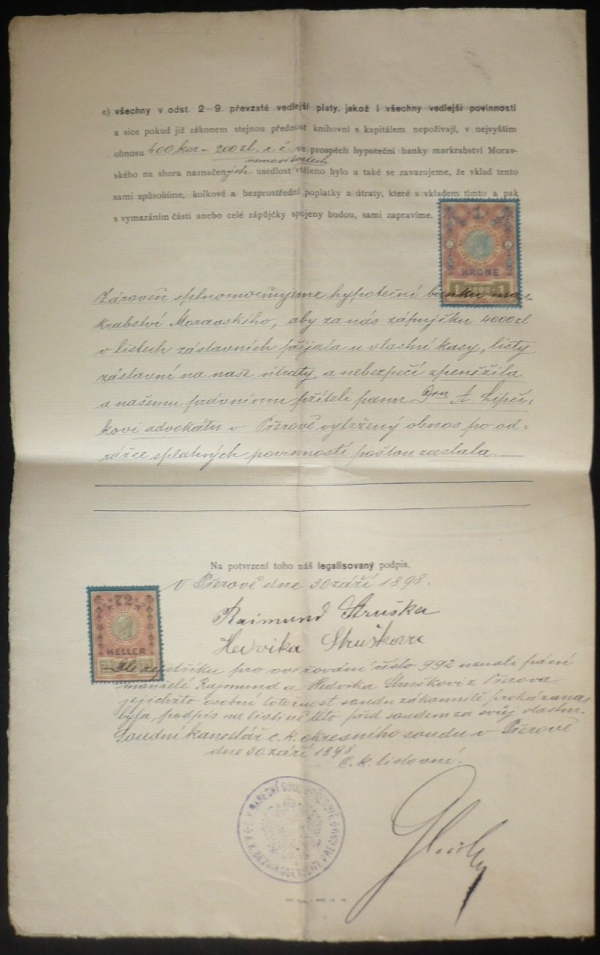 c) všechny v odst. 2–9. převzaté vedlejší platy, jakož i všechny vedlejší povinnosti
a sice pokud již zákonem stejnou přednost knihovní s kapitálem nepožívají, v nejvyšším
obnosu 400 kor – 200 zl. r. č. ve prospěch hypoteční banky markrabství Morav-
nemovitostech
ského na shora naznačených usedlost vtěleno bylo a také se zavazujeme, že vklad tento
sami způsobíme, kolkové a bezprostřední poplatky a útraty, které s vkladem tímto a pak
s vymazáním části anebo celé zápůjčky spojeny budou, sami zapravíme.
1 KRONE 1
Zároveň splnomocňujeme hypoteční banku mar-
krabství Moravského, aby za nás zápujčku 4000 zl
v listech zástavních přijala u vlastní kasy, listy
zástavní na naše útraty a nebezpečí zpeněžila
a našemu příteli panu A
kovi advokátu v Přerově vytržený obnos po od-
rážce splatných povinností poštou zaslala.
Na potvrzení toho náš legalisovaný podpis.
V Přerově dne 30 září 1898.
72
HELLER
Raimund Struška
Hedvika Strušková
pro ověřování číslo 992 uznali páni
manželé Rajmund a Hedvika Struškovi z Přerova
jejichžto osobní totožnost soudu zákonnitě prokázana
byla, podpis na listině této před soudem za svůj vlastní.
Soudní kancelář c. k. okresního soudu v Přerově
dne 30. září 1898
C. k.